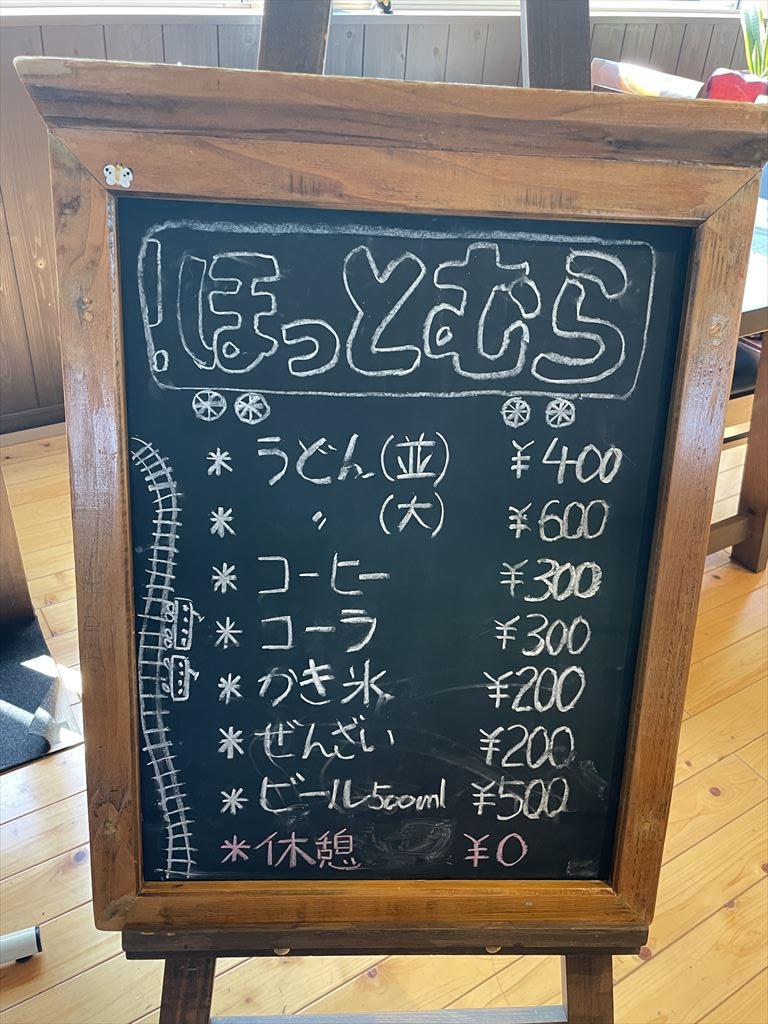 !ほっとむら
* うどん(並) ¥400
* 〃 (大) ¥600
* コーヒー ¥300
* コーラ ¥300
* かき氷 ¥200
* ぜんざい ¥200
* ビール500ml ¥500
* 休憩 ¥0